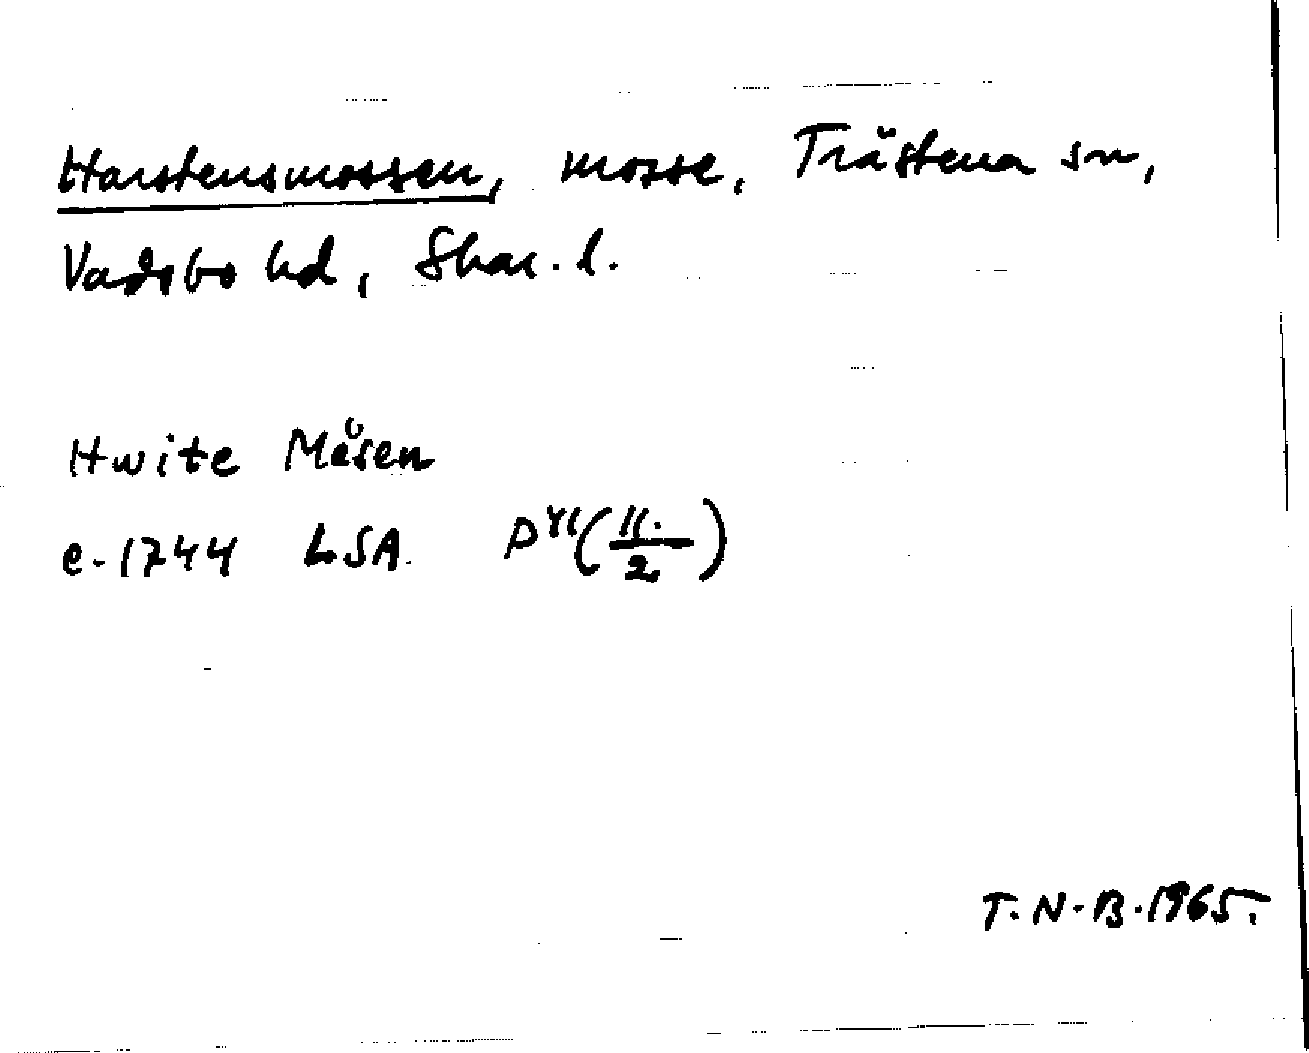 Harstensmossen, mosse, Trästena sn,
Vadsbo hd, Skar. l.
Hwite Måsen
e. 1744 LSA. P
T. N. B. 1965.